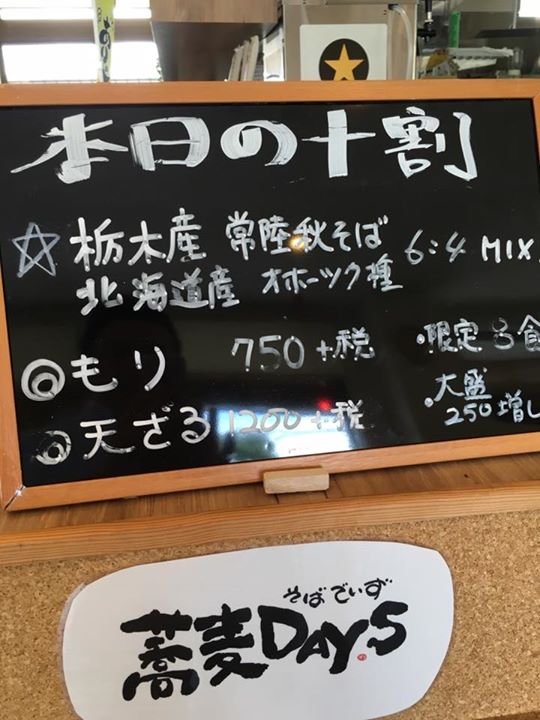 本日の十割
☆栃木産 常陸秋そば 6:4 MIX
北海道産 オホーツク種
◎もり 750+税
・限定8食
◎天ざる 1200+税
・大盛
250増し
そばでいず
蕎麦DAY.S